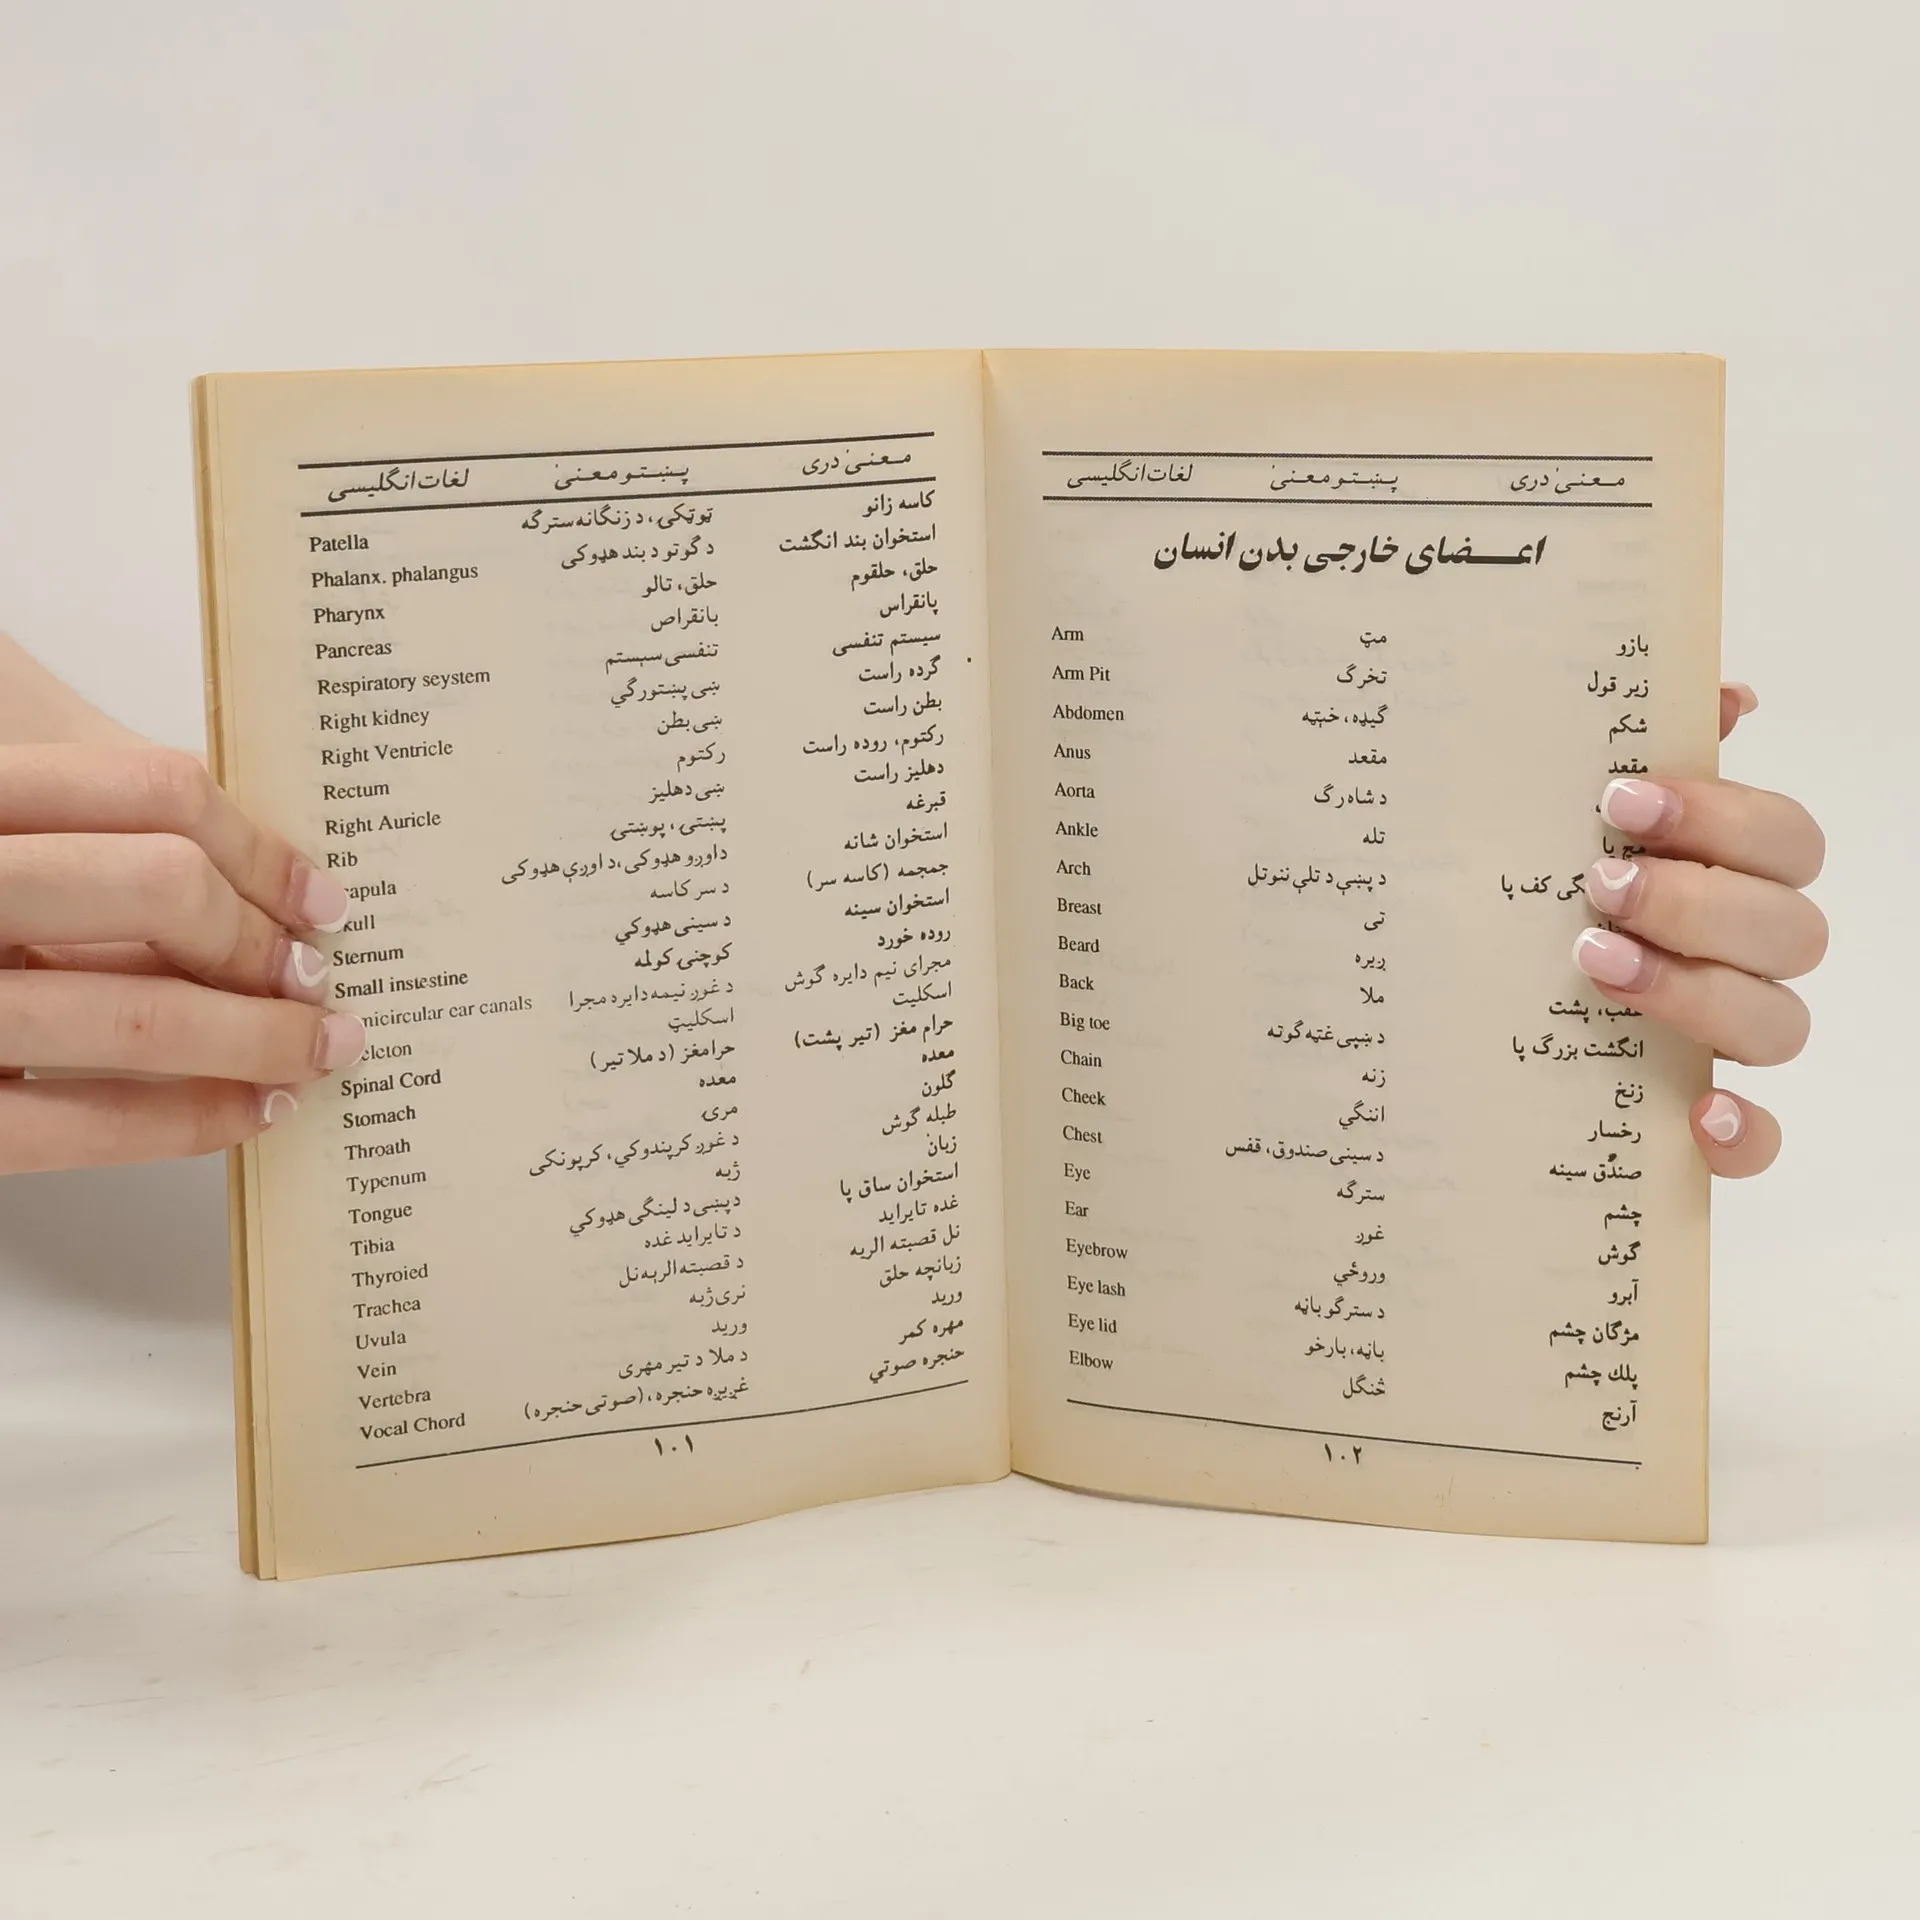 لغات انگلیسی پښتو معنیٰ معنیٰ دری
Patella ټوټکۍ، د زنگانه سترگه کاسه زانو
Phalanx. phalangus د گوتو د بند هډوکی استخوان بند انگشت
Pharynx حلق، تالو حلق، حلقوم
Pancreas بانقراص پانقراس
Respiratory seystem تنفسی سېستم سیستم تنفسی
Right kidney ښی پښتورگي گرده راست
Right Ventricle ښی بطن بطن راست
Rectum رکتوم رکتوم، روده راست
Right Auricle ښی دهلیز دهلیز راست
Rib پښتۍ، پوښتۍ قبرغه
داوږو هډوکی، د اوږې هډوکی استخوان شانه
د سر کاسه جمجمه (کاسه سر)
Sternum د سینی هډوکي استخوان سینه
Small instestine کوچنۍ کولمه روده خورد
car canals د غوږ نیمه دایره مجرا مجرای نیم دایره گوش
اسکلیټ اسکلیت
Spinal Cord حرامغز (د ملا تیر) حرام مغز (تیر پشت)
Stomach معده معده
Throath مرۍ گلون
Typenum د غوږ کرپندوکي، کرپونکی طبله گوش
Tongue ژبه زبان
Tibia د پښی د لینگی هډوکي استخوان ساق پا
Thyroied د تایراید غده غده تایراید
Trachea د قصبته الریه نل نل قصبته الریه
Uvula نری ژبه زبانچه حلق
Vein ورید ورید
Vertebra د ملا د تیر مهری مهره کمر
Vocal Chord غږیږه حنجره، (صوتی حنجره) حنجره صوتي
۱۰۱
لغات انگلیسی پښتو معنیٰ معنیٰ دری
اعضای خارجی بدن انسان
Arm مټ بازو
Arm Pit تخرگ زیر قول
Abdomen گیډه، خېټه شکم
Anus مقعد مقعد
Aorta د شاه رگ
Ankle تله مچ پا
Arch د پښې د تلې ننوتل کف پا
Breast تی
Beard ږیره
Back ملا پشت
Big toe د ښپی غټه گوته انگشت بزرگ پا
Chain زنه زنخ
Cheek اننگي رخسار
Chest د سینی صندوق، قفس صندُق سینه
Eye سترگه چشم
Ear غوږ گوش
Eyebrow وروځي آبرو
Eye lash د سترگو باڼه مژگان چشم
Eye lid باڼه، بارخو پلك چشم
Elbow څنگل آرنج
۱۰۲